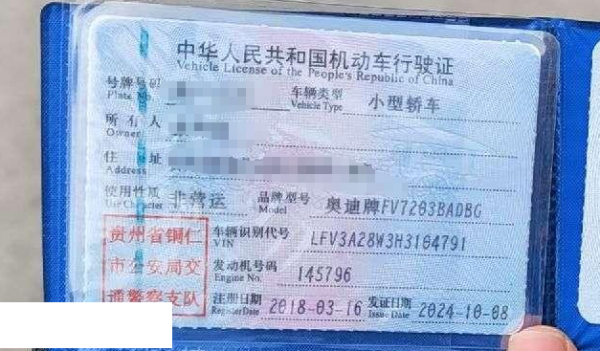 中华人民共和国机动车行驶证
Vehicle License of the People's Republic of China
号牌号码 车辆类型 小型轿车
Plate No. Vehicle Type
所有人
Owner
住址
Address
使用性质 非营运 品牌型号 奥迪牌FV7203BADBG
Use Character Model
贵州省铜仁 车辆识别代号 LFV3A28W3H3104791
VIN
市公安局交 发动机号码 145796
Engine No.
通警察支队 注册日期 2018-03-16 发证日期 2024-10-08
Register Date Issue Date